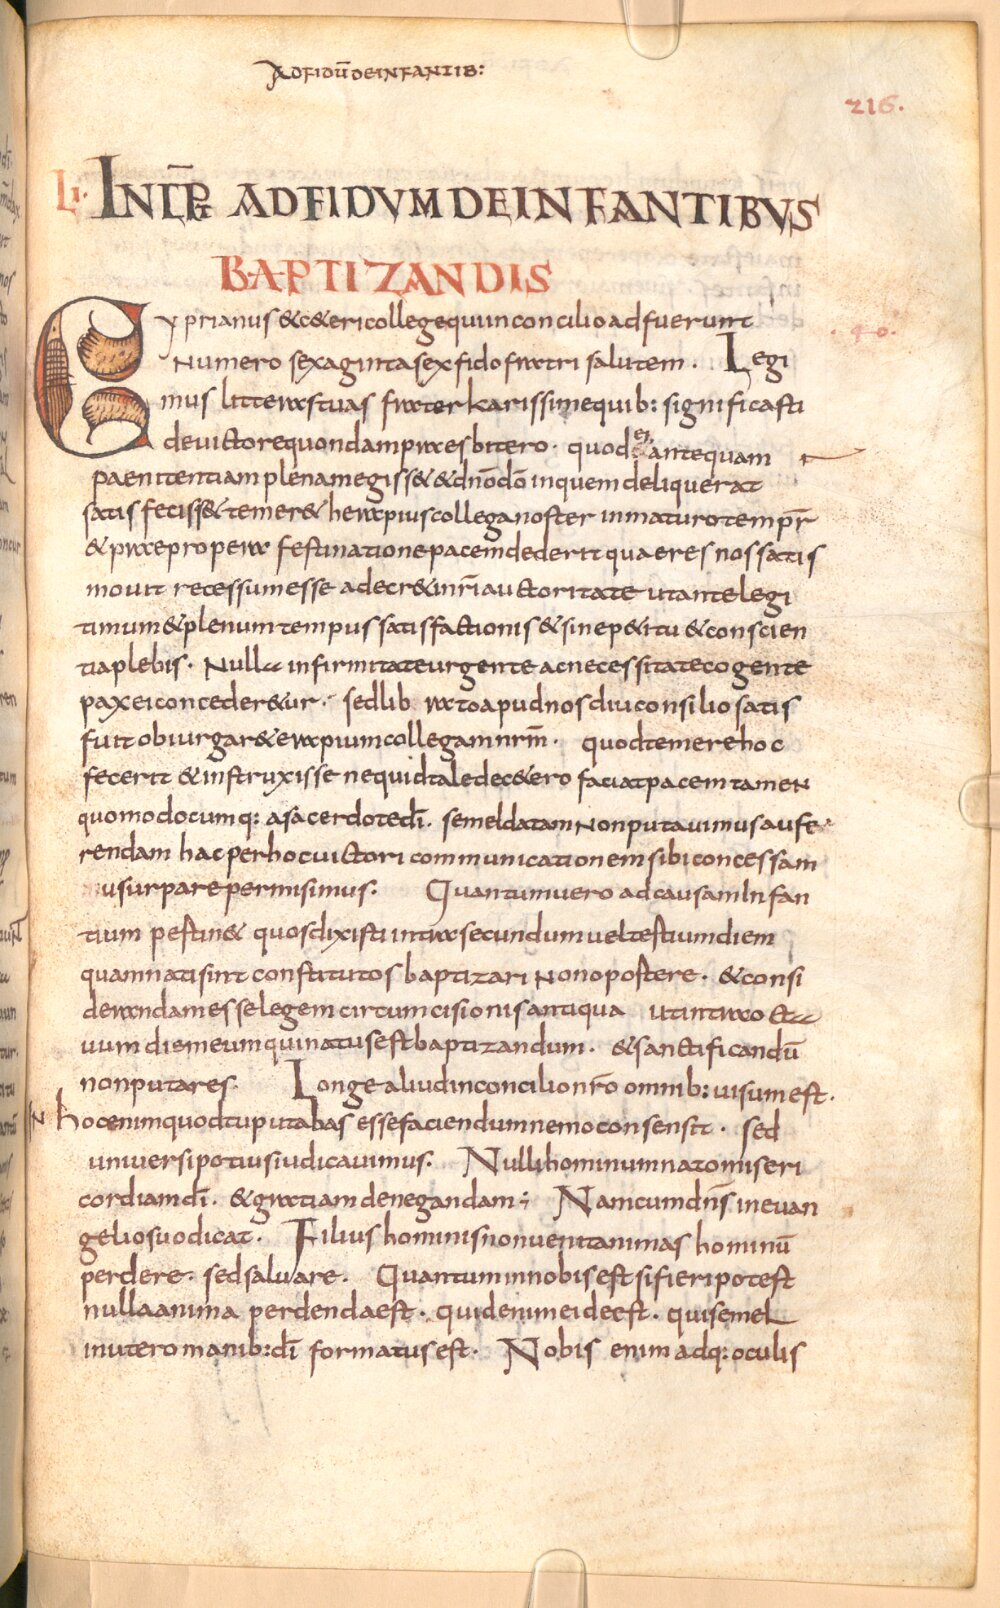 AD FIDŪ DE INFANTIB:
216.
LI. INCIP̄ AD FIDVM DE INFANTIBVS
BAPTIZANDIS
Cyprianus & c&eri college qui in concilio adfuerunt
.40.
Numero sexaginta sex fido fratri salutem. Legi
mus litteras tuas frater karissime quib: significasti
de victore quondam praesbitero. quod ei antequam
paenitentiam plenam egiss& & dnō dō in quem deliquerat
satis feciss& temer& herapius collega noster inmaturo tempr̄
& praepropera festinatione pacem dederit quae res nos satis
mouit recessum esse a decr&i nr̄i auctoritate ut ante legi
timum & plenum tempus satisfactionis & sine p&itu & conscien
tia plebis. Nulla infirmitate urgente ac necessitate cogente
pax ei conceder&ur. sed lib rato apud nos diu consilio satis
fuit obiurgare & erapium collegam nr̄m. quod temere hoc
fecerit & instruxisse ne quid tale dec&ero faciat pacem tamen
quomodocumq: a sacerdote dī. semel datam non putauimus aufe
rendam hac per hoc uictori communicationem sibi concessam
usurpare permisimus. Quantum uero ad causam Infan
tium pestin& quos dixisti intra secundum uel testium diem
quam nati sint constitutos baptizari non opostere. & consi
derandam esse legem circumcisionis antiqua ut intra octa
uum diem eum qui natus est baptizandum. & sanctificandū
non putares. Longe aliud in concilio nr̄o omnib: uisum est.
hoc enim quod tu putabas esse faciendum nemo consensit. sed
uniuersi potius iudicauimus. Nulli hominum nato miseri
cordiam dī. & gratiam denegandam; Nam cum dn̄s in euan
gelio suo dicat. Filius hominis non uenit animas hominū
perdere. sed saluare. Quantum in nobis est si fieri potest
nulla anima perdenda est. quid enim ei deest. qui semel
in utero manib: dī formatus est. Nobis enim adq: oculis